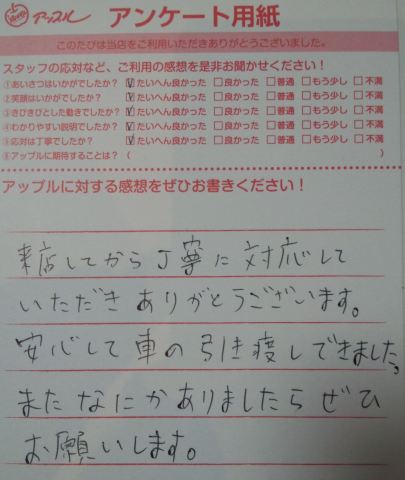 アップル アンケート用紙
このたびは当店をご利用いただきありがとうございました。
スタッフの応対など、ご利用の感想を是非お聞かせください！
①あいさつはいかがでしたか？ ☑たいへん良かった □良かった □普通 □もう少し □不満
②笑顔はいかがでしたか？ ☑たいへん良かった □良かった □普通 □もう少し □不満
③きびきびとした動きでしたか？ ☑たいへん良かった □良かった □普通 □もう少し □不満
④わかりやすい説明でしたか？ ☑たいへん良かった □良かった □普通 □もう少し □不満
⑤応対は丁寧でしたか？ ☑たいへん良かった □良かった □普通 □もう少し □不満
⑥アップルに期待することは？（ ）
アップルに対する感想をぜひお書きください！
来店してから丁寧に対応して
いただきありがとうございます。
安心して車の引き渡しできました。
またなにかありましたらぜひ
お願いします。